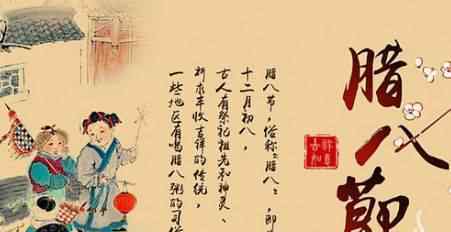 腊八節
腊八节，俗称“腊八”，即
十二月初八，
古人有祭祀祖先和神灵、
祈求丰收吉祥的传统，
一些地区有喝腊八粥的习俗